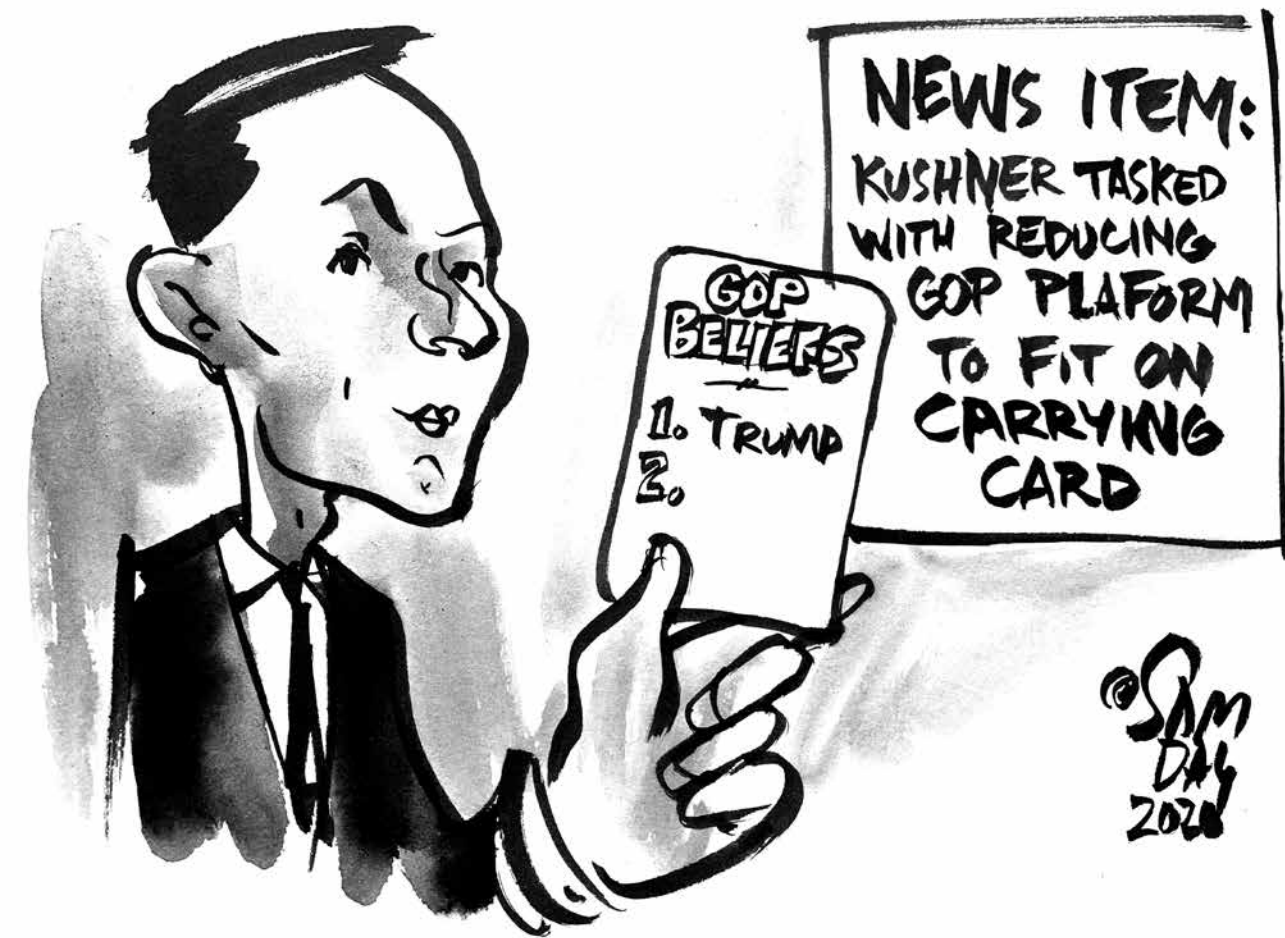 NEWS ITEM:
KUSHNER TASKED
WITH REDUCING
GOP PLAFORM
TO FIT ON
CARRYING
CARD
GOP
BELIEFS
1. TRUMP
2.
©SAM
DAY
2020